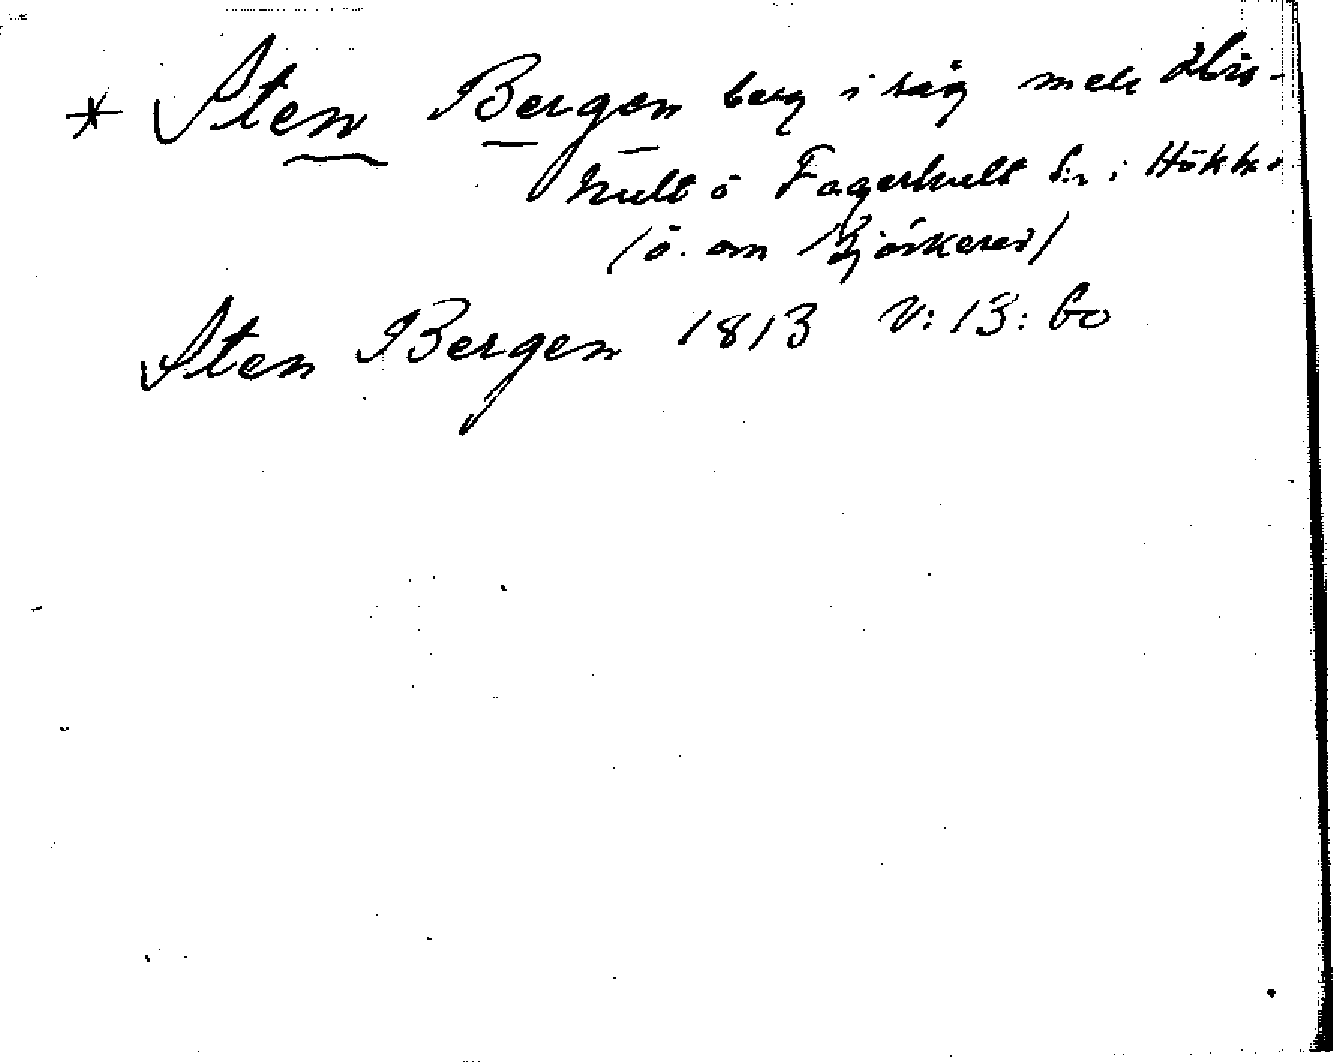 * Sten Bergen berg i säg mell
hult o Fagerhult
(ö. om Björkered)
Sten Bergen 1813 V: 13: 60